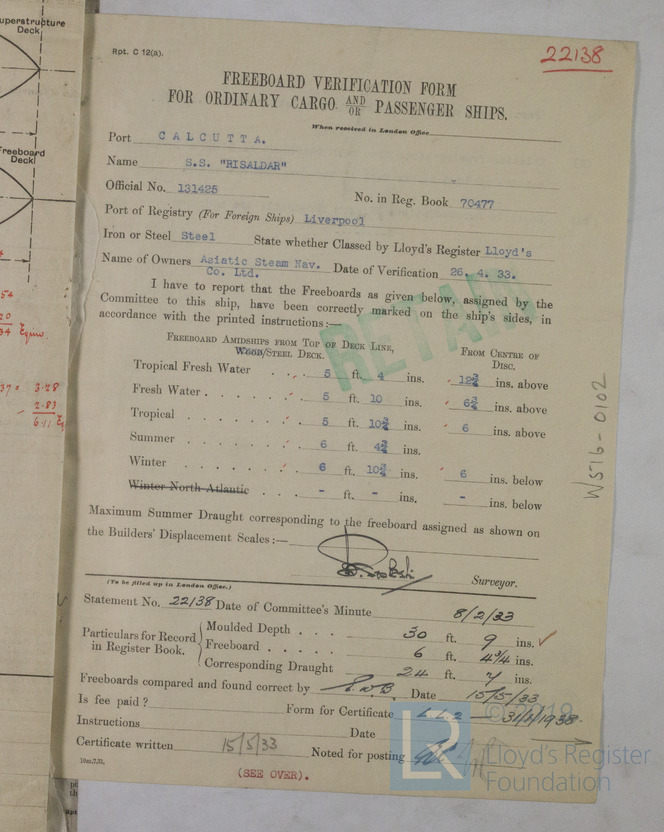 uperstructure
Deck
reeboard
Deck
Rpt. C 12(a).
22138
FREEBOARD VERIFICATION FORM
FOR ORDINARY CARGO AND/OR PASSENGER SHIPS.
When received in London Office
Port CALCUTTA.
Name S.S. "RISALDAR"
Official No. 131425 No. in Reg. Book 70477
Port of Registry (For Foreign Ships) Liverpool
Iron or Steel Steel State whether Classed by Lloyd's Register Lloyd's
Name of Owners Asiatic Steam Nav. Co. Ltd. Date of Verification 26. 4. 33.
I have to report that the Freeboards as given below, assigned by the
Committee to this ship, have been correctly marked on the ship's sides, in
accordance with the printed instructions:—
RETAIN
FREEBOARD AMIDSHIPS FROM TOP OF DECK LINE, WOOD/STEEL DECK. FROM CENTRE OF DISC.
Tropical Fresh Water . . 5 ft. 4 ins. 12¾ ins. above
Fresh Water . . . . . 5 ft. 10 ins. 6¾ ins. above
Tropical . . . . . . 5 ft. 10¾ ins. 6 ins. above
Summer . . . . . . 6 ft. 4¾ ins.
Winter . . . . . . 6 ft. 10¾ ins. 6 ins. below
Winter North Atlantic . . . - ft. - ins. - ins. below
W516-0102
Maximum Summer Draught corresponding to the freeboard assigned as shown on
the Builders' Displacement Scales:—
Surveyor.
(To be filled up in London Office.)
Statement No. 22138 Date of Committee's Minute 8/2/33
Particulars for Record in Register Book.
Moulded Depth . . . 30 ft. 9 ins.
Freeboard . . . . . 6 ft. 4¾ ins.
Corresponding Draught 24 ft. 7 ins.
Freeboards compared and found correct by Date 15/5/33
Is fee paid? Form for Certificate L.L.2 31/1/1938
Instructions Date
Certificate written 15/5/33 Noted for posting
10m,7,33.
(SEE OVER).
© 2019
LR
Lloyd's Register
Foundation